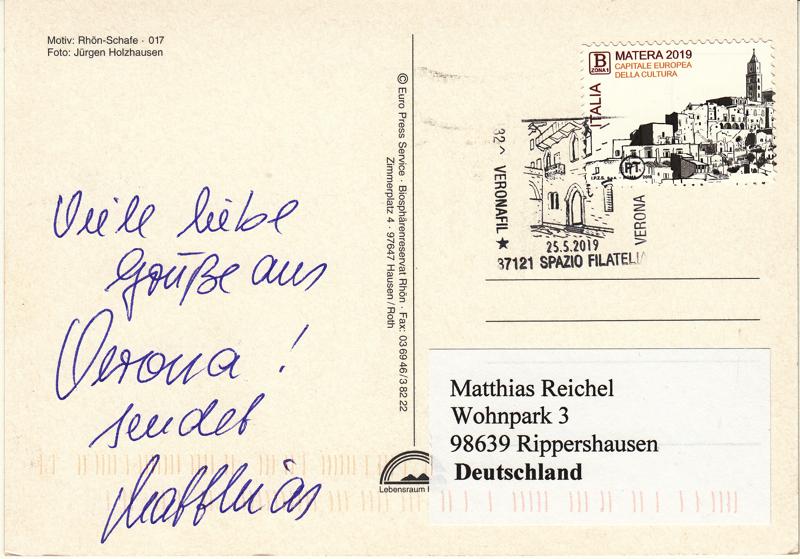 Motiv: Rhön-Schafe · 017
Foto: Jürgen Holzhausen
Viele liebe
Grüße aus
Verona!
sendet
Matthias
© Euro Press Service · Biosphärenreservat Rhön · Fax: 03 69 46/3 82 22
Zimmerplatz 4 · 97647 Hausen/Roth
Lebensraum
B
ZONA 1
MATERA 2019
CAPITALE EUROPEA
DELLA CULTURA
ITALIA
PT
32^ VERONAFIL ★
VERONA
25.5.2019
37121 SPAZIO FILATELIA
Matthias Reichel
Wohnpark 3
98639 Rippershausen
Deutschland